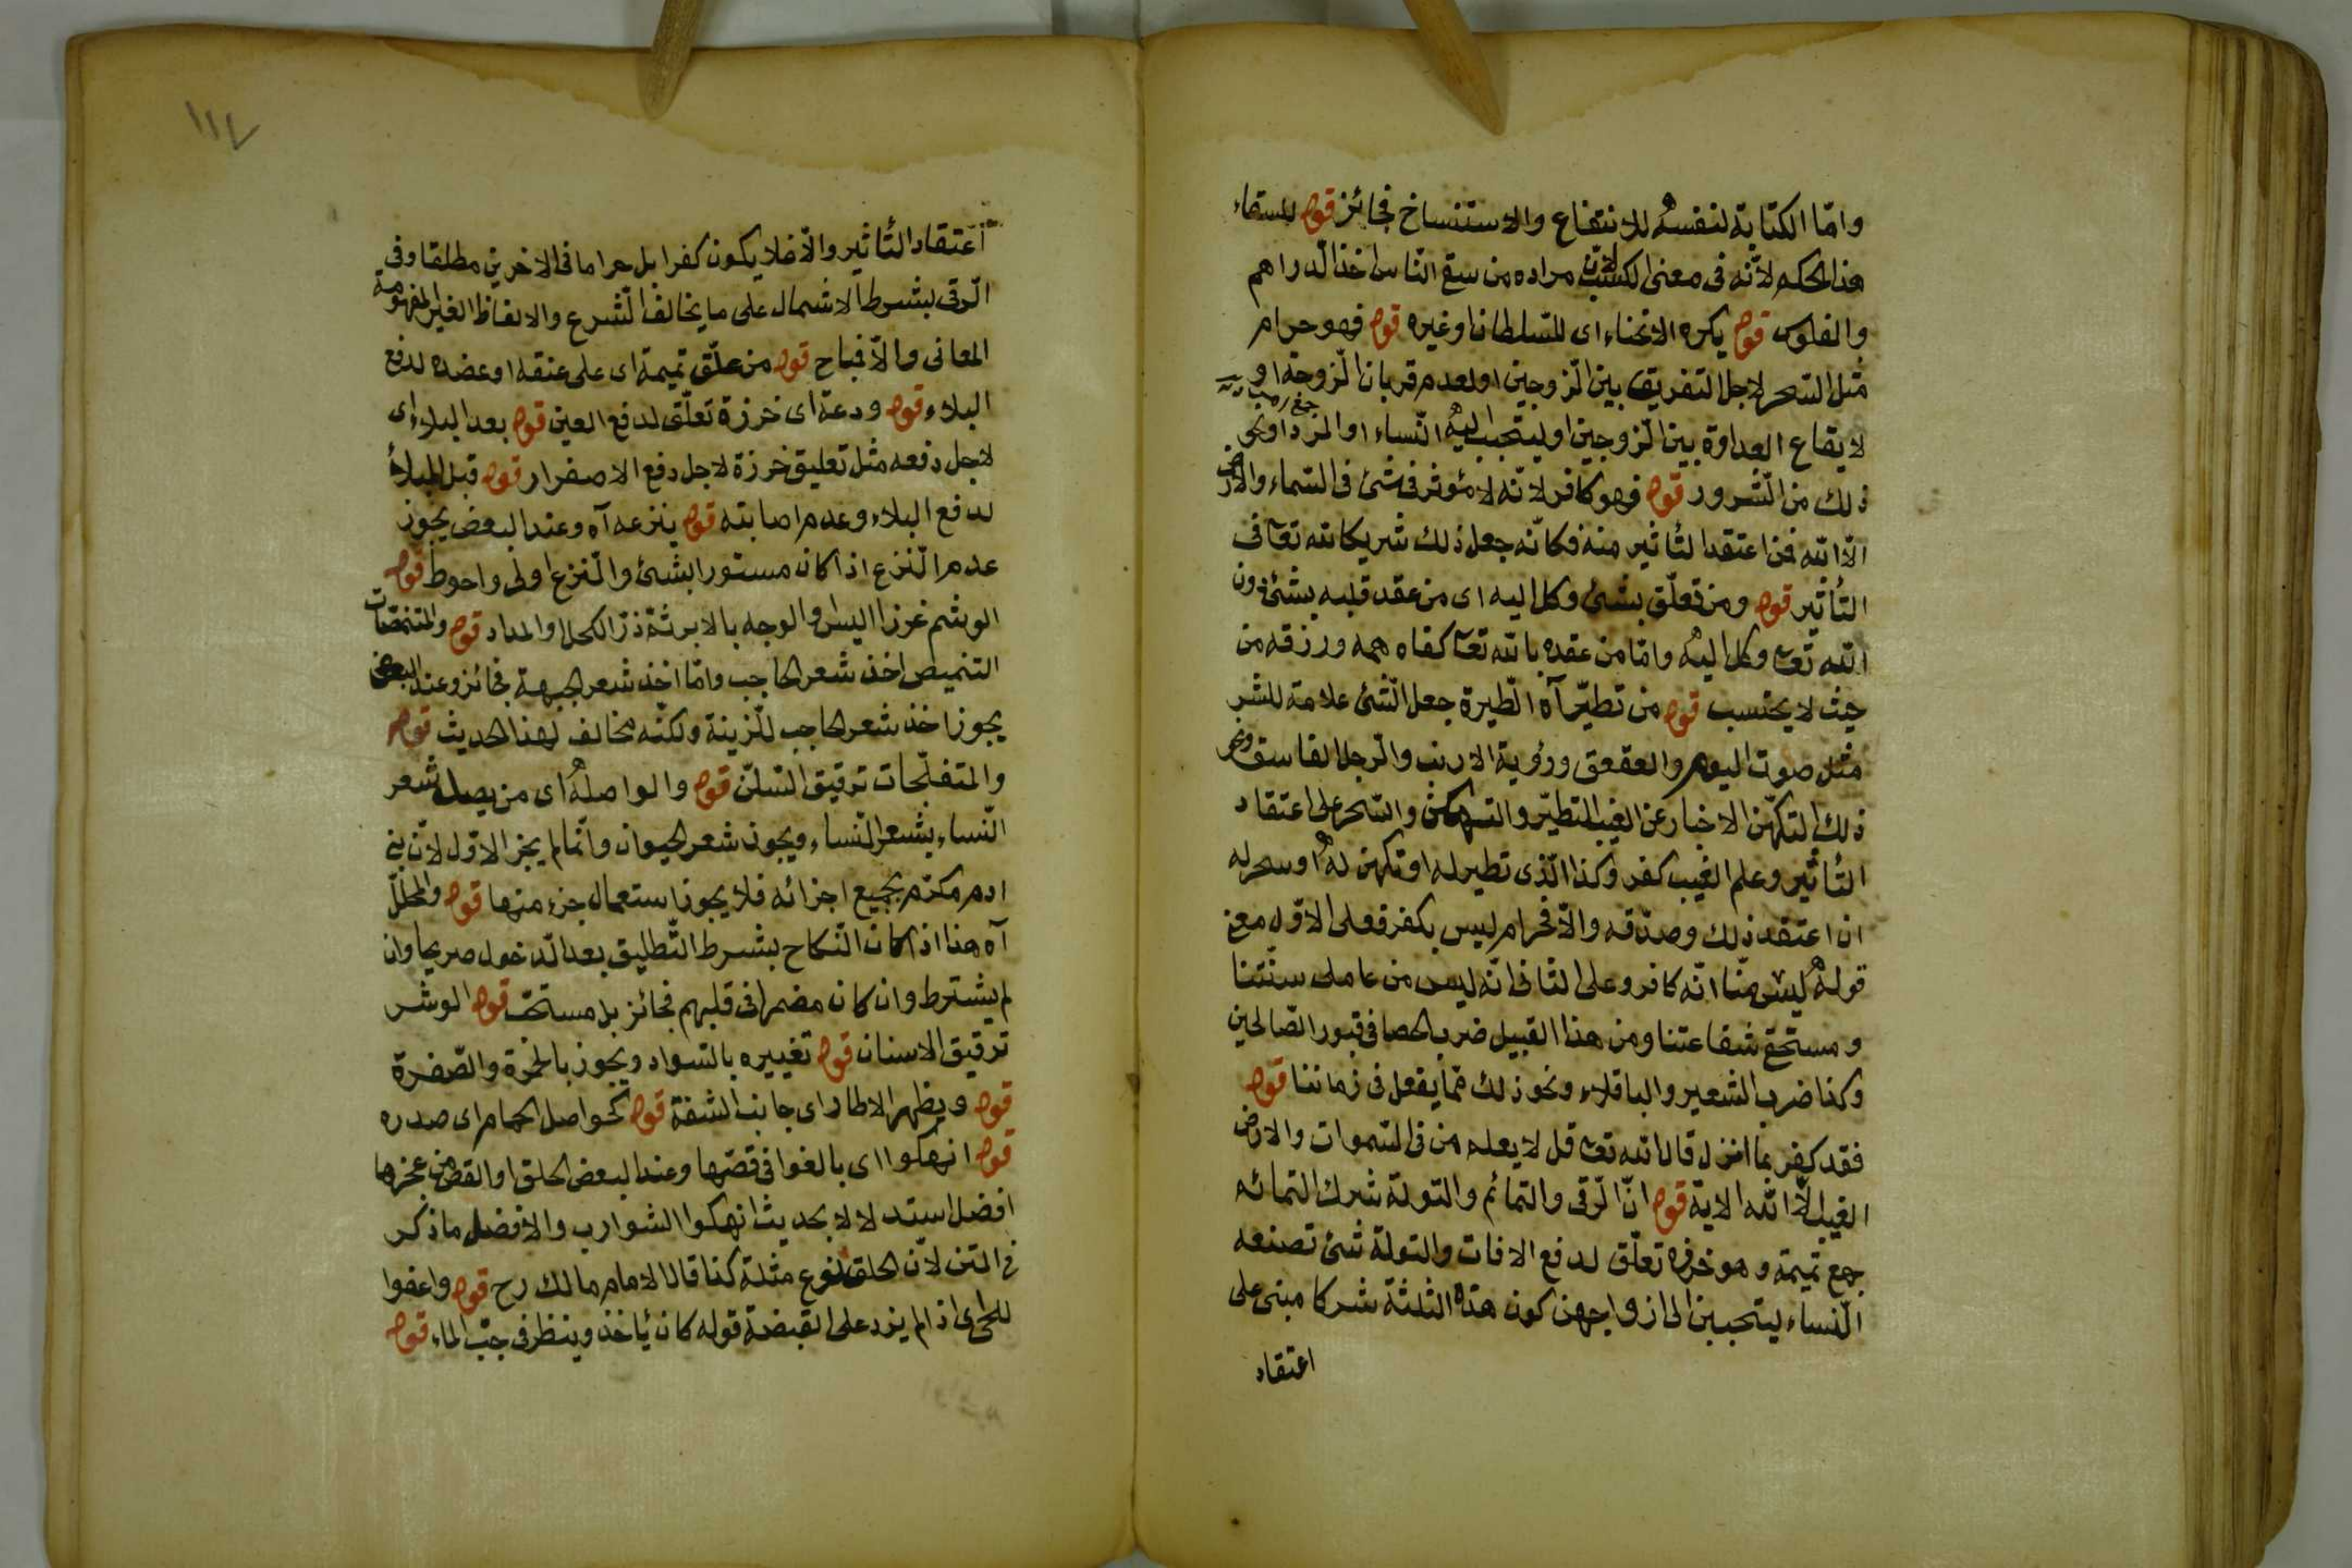 وامّا الكتابة لنفسه للانتفاع والاستنساخ فجائز قوله للسقاء
هذا الحكم لانّه فى معنى الكسب لان مراده من سقى النّاس اخذ الدّراهم
والفلوس قوله يكره الانحناء اى للسّلطان او غيره قوله فهو حرام
مثل السّحر لاجل التفريق بين الزّوجين او لعدم قربان الزّوجة او
لايقاع العداوة بين الزّوجين او ليتحبب اليه النّساء او المرد او نحو
ذلك من الشّرور قوله فهو كافر لانّه لا مؤثر فى شئ فى السّماء والارض
الّا الله فمن اعتقد التأثير منه فكانّه جعل ذلك شريكا لله تعا فى
التأثير قوله ومن تعلّق بشئ وكل اليه اى من عقد قلبه بشئ دون
الله تعا وكل اليه وامّا من عقده بالله تعا كفاه همه ورزقه من
حيث لا يحتسب قوله من تطيّر آه الطّيرة جعل الشّئ علامة للشر
مثل صوت البوم والعقعق ورؤية الارنب والرّجل الفاسق ونحو
ذلك التكهّن الاخبار عن الغيب التطيّر والتكهن والسّحر على اعتقاد
التأثير وعلم الغيب كفر وكذا الّذى تطير له او تكهن له او سحر له
ان اعتقد ذلك وصدّقه والّا فحرام ليس بكفر فعلى الاوّل معنى
قوله ليس منّا انّه كافر وعلى الثانى انّه ليس من عاملى سنّتنا
ومستحق شفاعتنا ومن هذا القبيل ضرب الحصا فى قبور الصّالحين
وكذا ضرب الشعير والباقلاء ونحو ذلك ممّا يفعل فى زماننا قوله
فقد كفر بما انزل قال الله تعا قل لا يعلم من فى السّموات والارض
الغيب الّا الله الاية قوله انّ الرّقى والتمائم والتولة شرك التمائم
جمع تميمة وهو خرزة تعلّق لدفع الافات والتولة شئ تصنعه
النّساء ليتحببن الى ازواجهن كون هذه الثلثة شركا مبنى على
اعتقاد
١١٧
اعتقاد التأثير والّا فلا يكون كفرا بل حراما فى الاخرين مطلقا وفى
الرّقى بشرط الاشمال على ما يخالف الشّرع والالفاظ الغير المفهومة
المعانى والّا فمباح قوله من علّق تميمة اى على عنقه او عضده لدفع
البلاء قوله ودعة اى خرزة تعلّق لدفع العين قوله بعد البلاء اى
لاجل دفعه مثل تعليق خرزة لاجل دفع الاصفرار قوله قبل البلاء
لدفع البلاء وعدم اصابته قوله ينزعه آه وعند البعض يجوز
عدم النّزع اذا كان مستورا بشئ والنّزع اولى واحوط قوله
الوشم غرز اليد او الوجه بالابر ثمّ ذرّ الكحل او المداد قوله والمتنمّصات
التنميص اخذ شعر الحاجب وامّا اخذ شعر الجبهة فجائز وعند البعض
يجوز اخذ شعر الحاجب للزّينة ولكنّه مخالف لهذا الحديث قوله
والمتفلّجات ترقيق السّنّ قوله والواصلة اى من يصل شعر
النّساء بشعر النّساء ويجوز شعر الحيوان وانّما لم يجز الاوّل لانّ بنى
ادم مكرّم بجميع اجزائه فلا يجوز استعمال جزء منها قوله والمحلّل
آه هذا اذا كان النّكاح بشرط التّطليق بعد الدّخول صريحا وان
لم يشترط وان كان مضمرا فى قلبهم فجائز بل مستحبّ قوله الوشر
ترقيق الاسنان قوله تغييره بالسّواد ويجوز بالحمرة والصّفرة
قوله ويظهر الاطار اى جانب الشفة قوله كحواصل الحمام اى صدره
قوله انهكوا اى بالغوا فى قصّها وعند البعض الحلق او القص من عجزها
افضل استدلالا بحديث انهكوا الشوارب والافضل ما ذكر
فى المتن لانّ الحلق نوع مثلة كذا قال الامام مالك رح قوله واعفوا
اللحى اى اذا لم يزد على القبضة قوله كان يأخذ وينظر فى جبّ الماء قوله